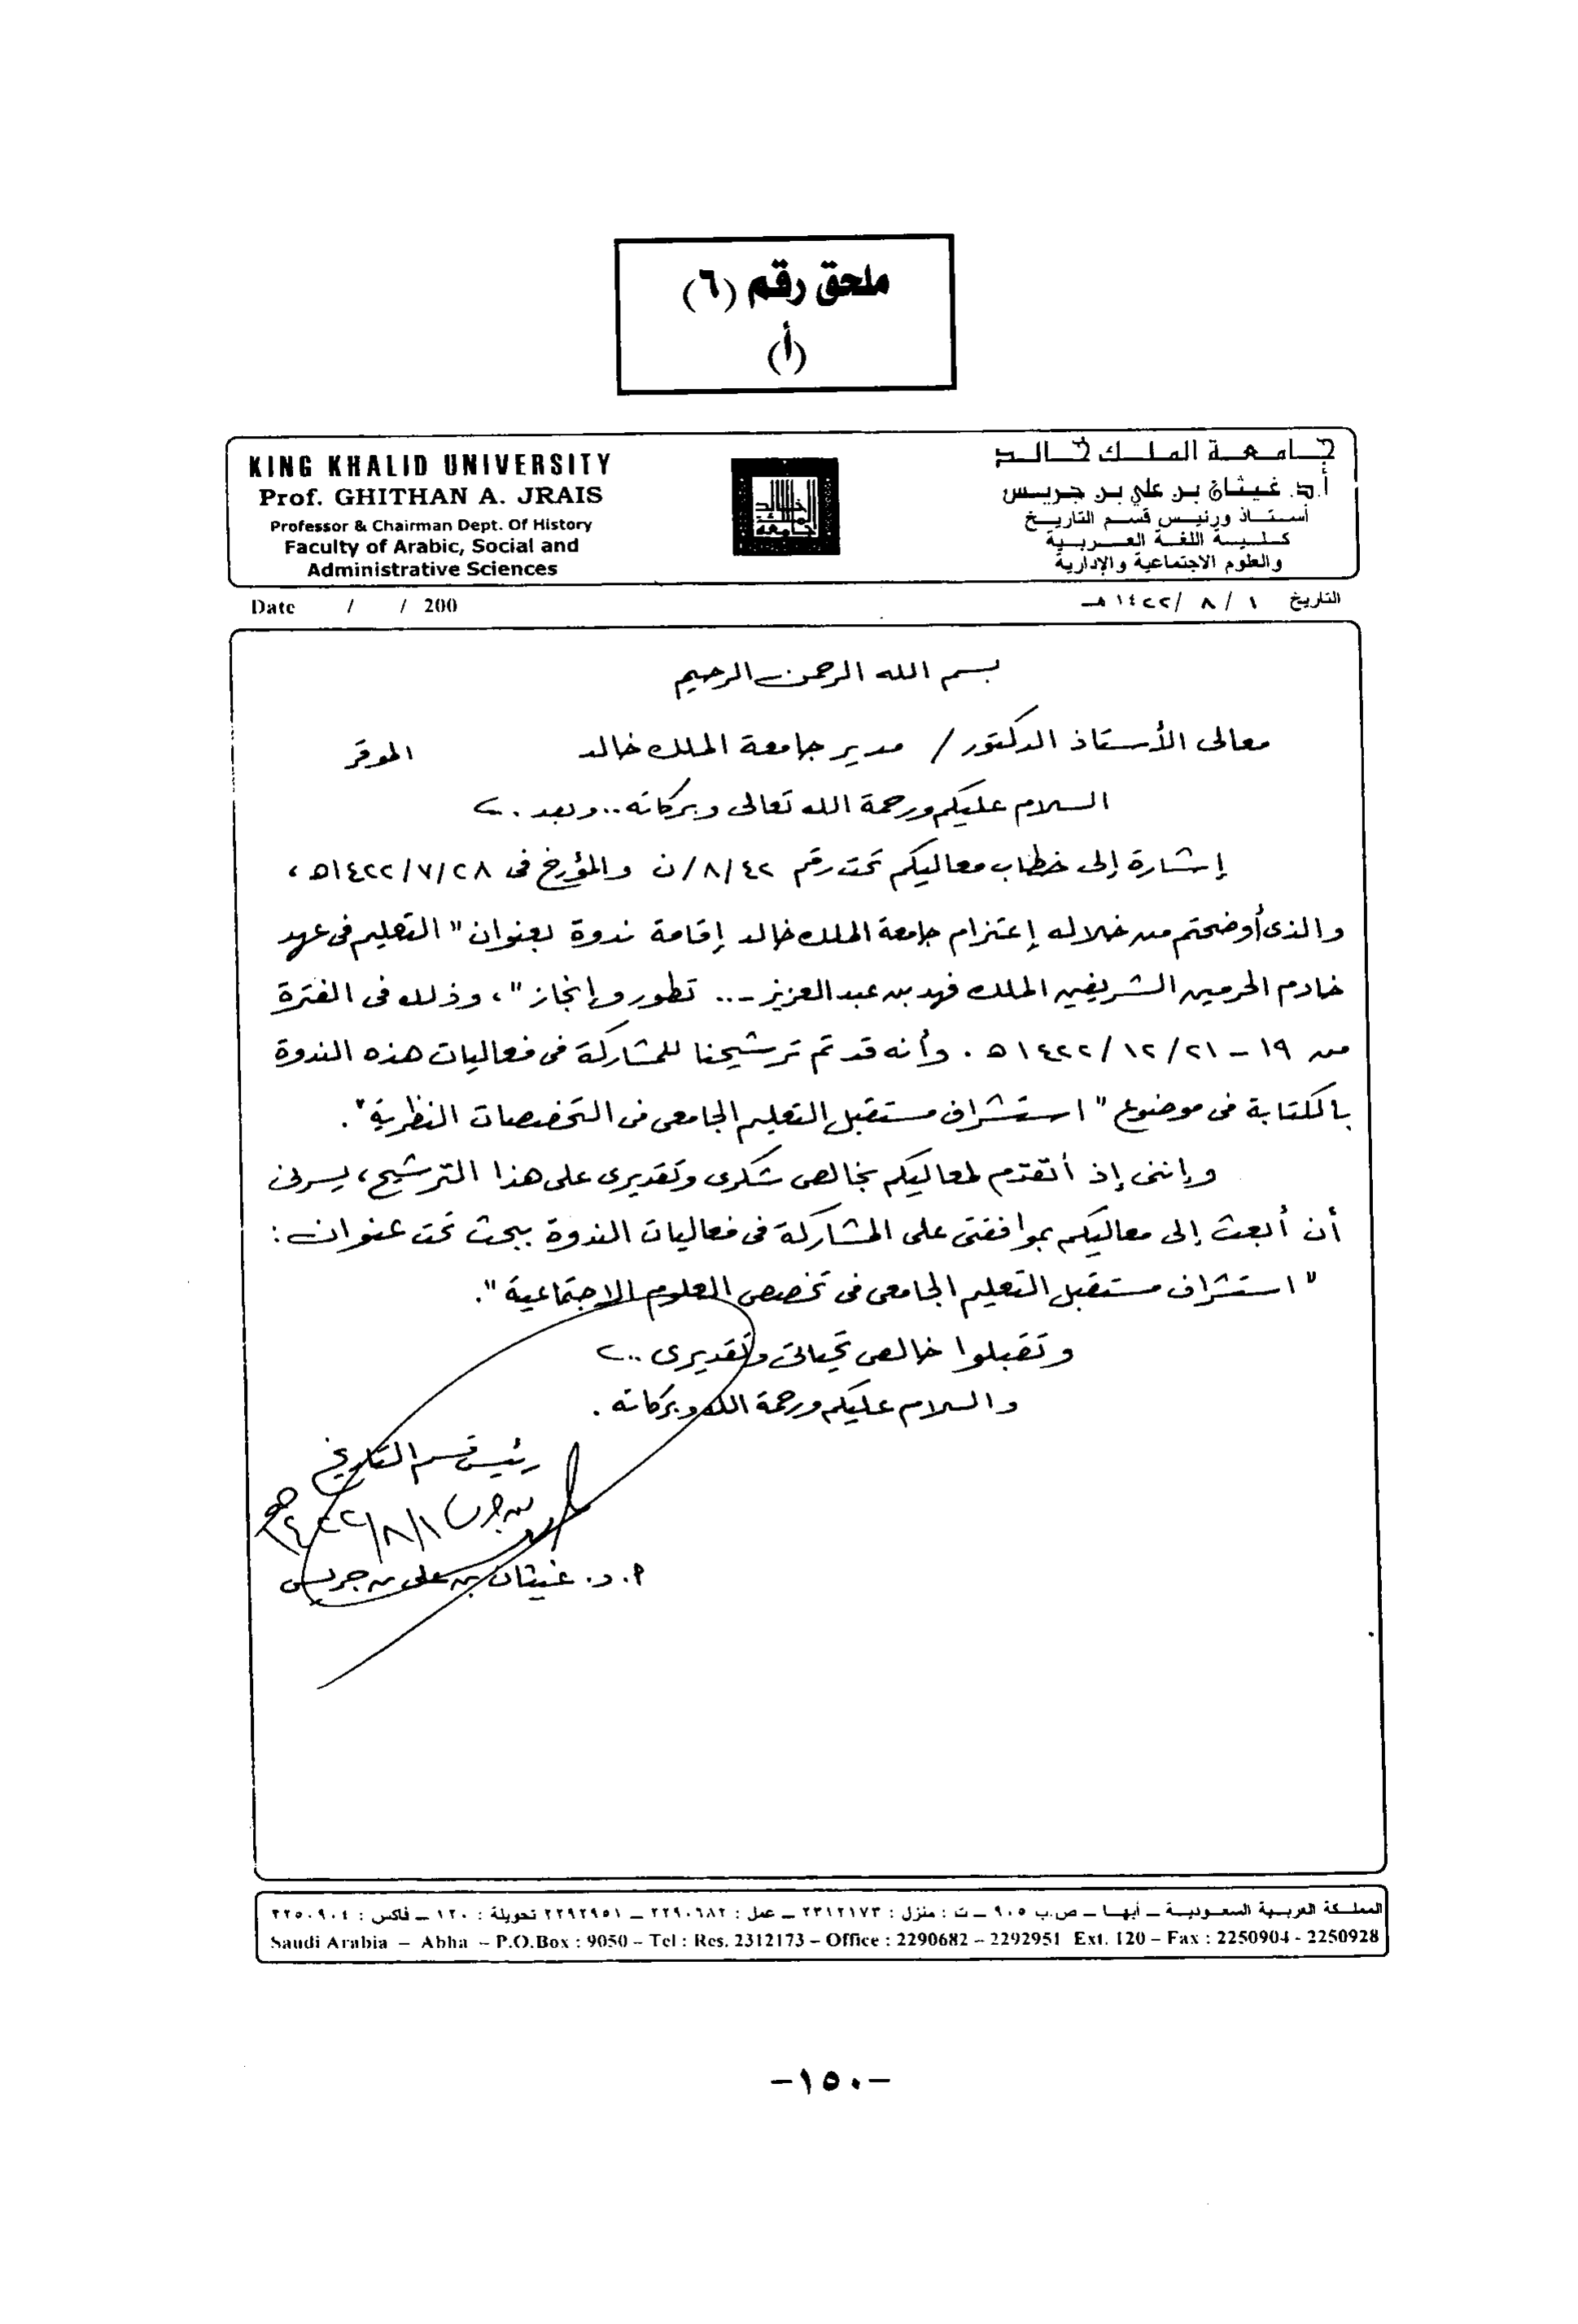 ملحق رقم (٦)
(أ)
KING KHALID UNIVERSITY
Prof. GHITHAN A. JRAIS
Professor & Chairman Dept. Of History
Faculty of Arabic, Social and
Administrative Sciences
جامعة الملك خالد
أ.د. غيثان بن علي بن جريس
أستاذ ورئيس قسم التاريخ
كلية اللغة العربية
والعلوم الاجتماعية والإدارية
Date / / 200
التاريخ ١ / ٨ / ١٤٢٢ هـ
بسم الله الرحمن الرحيم
معالى الأستاذ الدكتور / مدير جامعة الملك خالد الموقر
السلام عليكم ورحمة الله تعالى وبركاته .. وبعد ..
إشارة إلى خطاب معاليكم تحت رقم ٨/٤٢/ن والمؤرخ فى ١٤٢٢/٧/٢٨هـ ،
والذى أوضحتم من خلاله إعتزام جامعة الملك خالد إقامة ندوة بعنوان " التعليم فى عهد
خادم الحرمين الشريفين الملك فهد بن عبد العزيز ... تطور وإنجاز " ، وذلك فى الفترة
من ١٩ - ١٤٢٢/١٢/٢١ هـ . وأنه قد تم ترشيحنا للمشاركة فى فعاليات هذه الندوة
بالكتابة فى موضوع " استشراف مستقبل التعليم الجامعى فى التخصصات النظرية " .
وإننى إذ أتقدم لمعاليكم بخالص شكرى وتقديرى على هذا الترشيح ، يسرنى
أن أبعث إلى معاليكم بموافقتى على المشاركة فى فعاليات الندوة ببحث تحت عنوان :
" استشراف مستقبل التعليم الجامعى فى تخصص العلوم الاجتماعية " .
وتقبلوا خالص تحياتى وتقديرى ..
والسلام عليكم ورحمة الله وبركاته .
رئيس قسم التاريخ
١٤٢٢/٨/١هـ
أ . د . غيثان بن على بن جريس
المملكة العربية السعودية ـ أبها ـ ص.ب ٩٠٥ ـ ت : منزل : ٢٣١٢١٧٣ ـ عمل : ٢٢٩٠٦٨٢ ـ ٢٢٩٢٩٥١ تحويلة : ١٢٠ ـ فاكس : ٢٢٥٠٩٠٤
Saudi Arabia – Abha – P.O.Box : 9050 – Tel : Res. 2312173 – Office : 2290682 – 2292951 Ext. 120 – Fax : 2250904 - 2250928
-١٥٠-